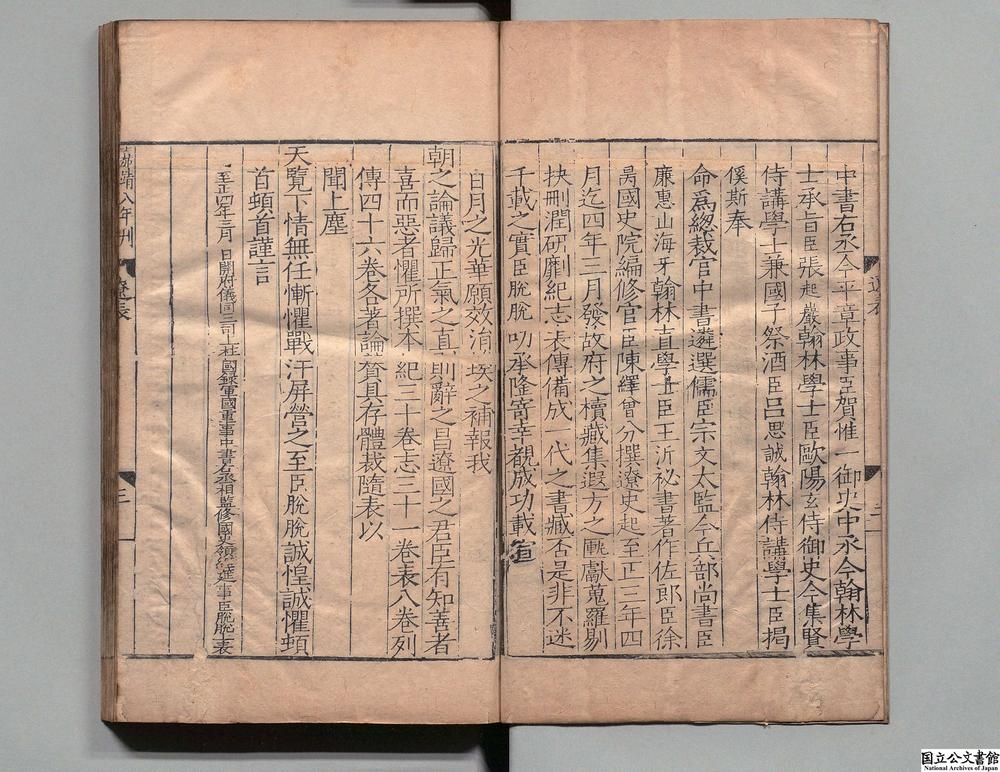 中書右丞今平章政事臣賀惟一御史中丞今翰林學
士承旨臣張起巖翰林學士臣歐陽玄侍御史今集賢
侍講學士兼國子祭酒臣呂思誠翰林侍講學士臣揭
傒斯奉
命爲緫裁官中書遴選儒臣宗文太監今兵部尚書臣
廉惠山海牙翰林直學士臣王沂祕書著作佐郎臣徐
昺國史院編修官臣陳繹曾分撰遼史起至正三年四
月迄四年三月發故府之櫝藏集遐方之匭獻蒐羅剔
抉刪潤研劘紀志表傳備成一代之書臧否是非不迷
千載之實臣脫脫叨承隆寄幸覩成功載宣
日月之光華願效涓埃之補報我
朝之論議歸正氣之直則辭之昌遼國之君臣有知善者
喜而惡者懼所撰本紀三十卷志三十一卷表八卷列
傳四十六卷各著論賛具存體裁隨表以
聞上塵
天覽下情無任慚懼戰汗屏營之至臣脫脫誠惶誠懼頓
首頓首謹言
至正四年三月 日開府儀同三司上柱國錄軍國重事中書右丞相監修國史領 事臣脫脫上表
靖八年刊
遼表
三
国立公文書館
National Archives of Japan